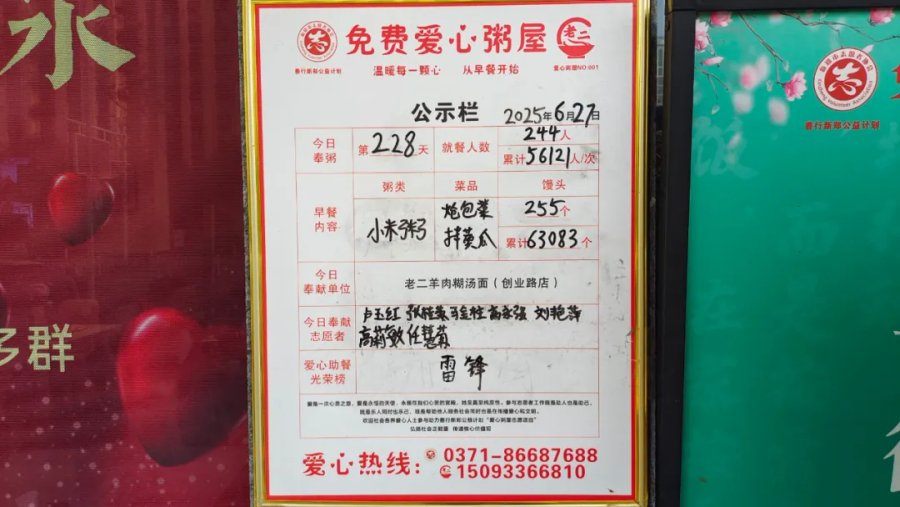 水
多群
免费爱心粥屋
老二
善行新郑公益计划
温暖每一颗心 从早餐开始
爱心粥屋NO:001
公示栏 2025年6月27日
今日奉粥 第228天 就餐人数 244人
累计56121人/次
早餐内容 粥类 菜品 馒头
小米粥 炝包菜 255个
拌黄瓜 累计63083个
今日奉献单位 老二羊肉糊汤面（创业路店）
今日奉献志愿者 卢玉红 高永强 刘艳萍
高莉敏 任慧菊
爱心助餐光荣榜 雷锋
弘扬社会正能量 传递核心价值观
爱心热线： 0371-86687688
15093366810
新郑市志愿者协会
Xinzheng Volunteer Association
善行新郑公益计划